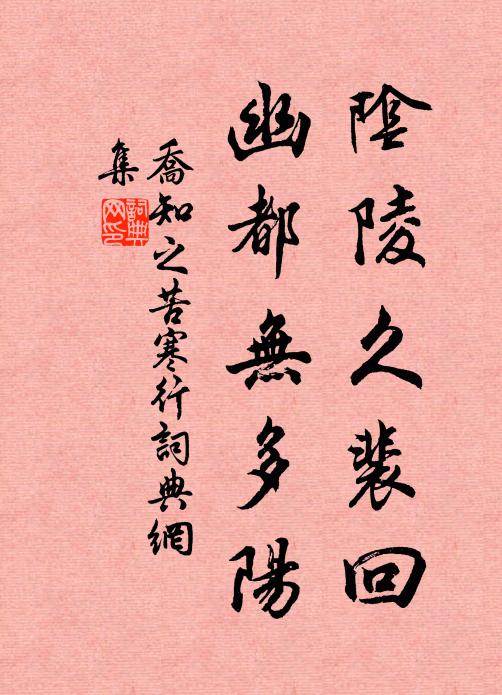 陰陵久裴回
幽都無多陽
喬知之苦寒行詞典網
集
詞典网印